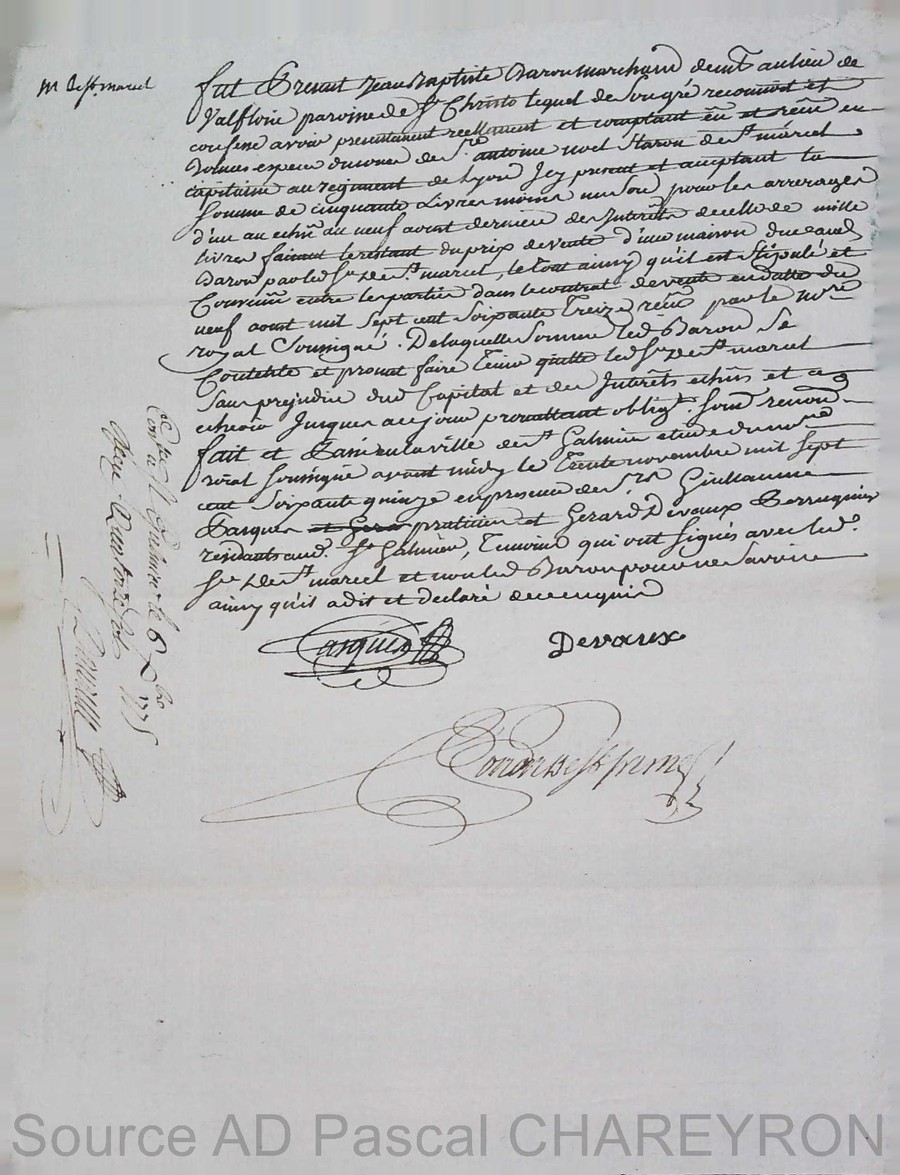 Mr de St marcel
fut Present Jean Baptiste Baron marchand demt au lieu de
Valfloin paroisse de St Christo lequel de son gré reconnoit et
confesse avoir presentement reellement et comptant eû et reçu en
bonnes especes du sonet de Sre antoine noel Staron de St marcel
capitaine au regiment de Lyon Icy present et acceptant la
somme de cinquante Livres moins un sou pour les arrerages
d'un an echû au neuf aoust dernier des Interêts de celle de mille
livres faisant le restant du prix de vente d'une maison du
Baron par led Sr De St marcel, le tout ainsy qu'il est stipulé et
Convenu entre les parties dans le contrat de vente en datte du
neuf aoust mil sept cent soixante Treize reçu par le nore
royal soussigné. De laquelle somme led Baron se
Contente et promet faire Tenir quitte led Sr De St marcel
sans prejudice dud Capital et des Interêts echûs et a
echeoir Jusques au jour promettant obligt. soum renon
fait et Passé en la ville de St Galmier etude du nore
roial soussigné avant midy le Trente novembre mil sept
cent soixante quinze en presence de Srs Guillaume
Pasquier et Gera praticien et Gerard Devaux Perruquier
residants aud. St Galmier, Temoins qui ont signés avec led.
Sr De St marcel et non led Baron pour ne savoir
ainsy qu'il a dit et declaré de ce enquis
Pasquier Devaux
Contlé a St Galmier le 6 Xbre 1775
Reçu Quatorze sols